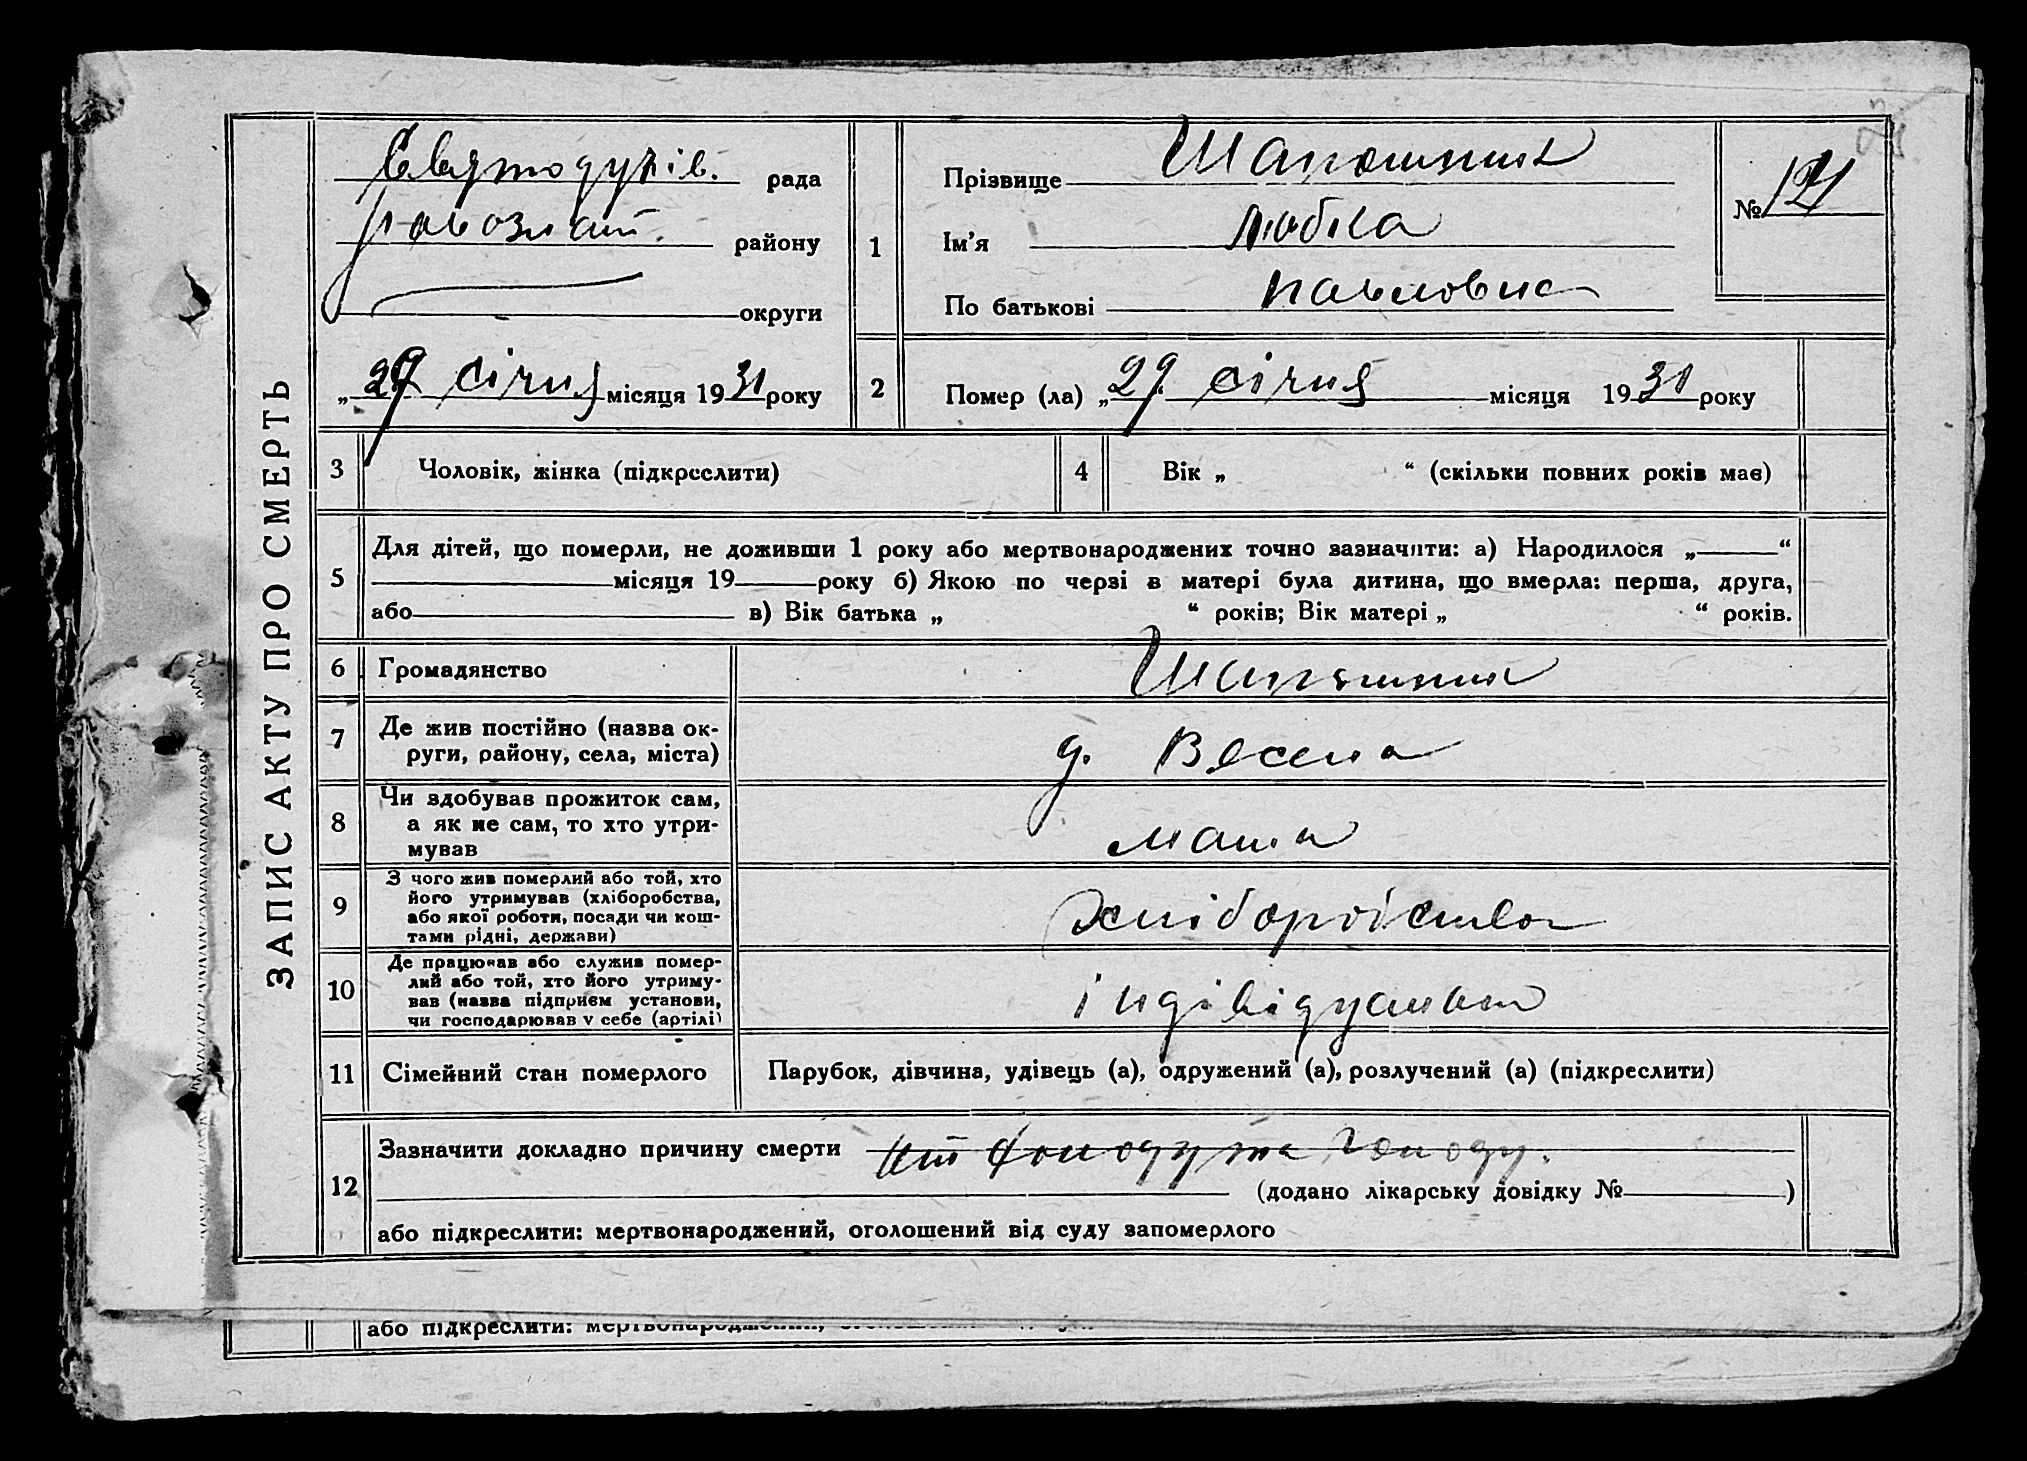 ЗАПИС АКТУ ПРО СМЕРТЬ
рада
району
округи
„ 29 січня місяця 1931 року
1
Прізвище Шапошник
Ім'я Любка
По батькові Павловна
№ 121
2
Помер (ла) „ 29 січня місяця 1931 року
3
Чоловік, жінка (підкреслити)
4
Вік „ “ (скільки повних років має)
5
Для дітей, що померли, не доживши 1 року або мертвонароджених точно зазначити: а) Народилося „ “
місяця 19 року б) Якою по черзі в матері була дитина, що вмерла: перша, друга,
або в) Вік батька „ “ років; Вік матері „ “ років.
6
Громадянство Шапошник
7
Де жив постійно (назва ок-
руги, району, села, міста)
д. Весела
8
Чи здобував прожиток сам,
а як не сам, то хто утри-
мував
мати
9
З чого жив померлий або той, хто
його утримував (хліборобства,
або якої роботи, посади чи кош-
тами рідні, держави)
10
Де працював або служив помер-
лий або той, хто його утриму-
вав (назва підприєм установи,
чи господарював у себе (артілі)
11
Сімейний стан померлого
Парубок, дівчина, удівець (а), одружений (а), розлучений (а) (підкреслити)
12
Зазначити докладно причину смерти та голоду.
(додано лікарську довідку № )
або підкреслити: мертвонароджений, оголошений від суду запомерлого
або підкреслити: